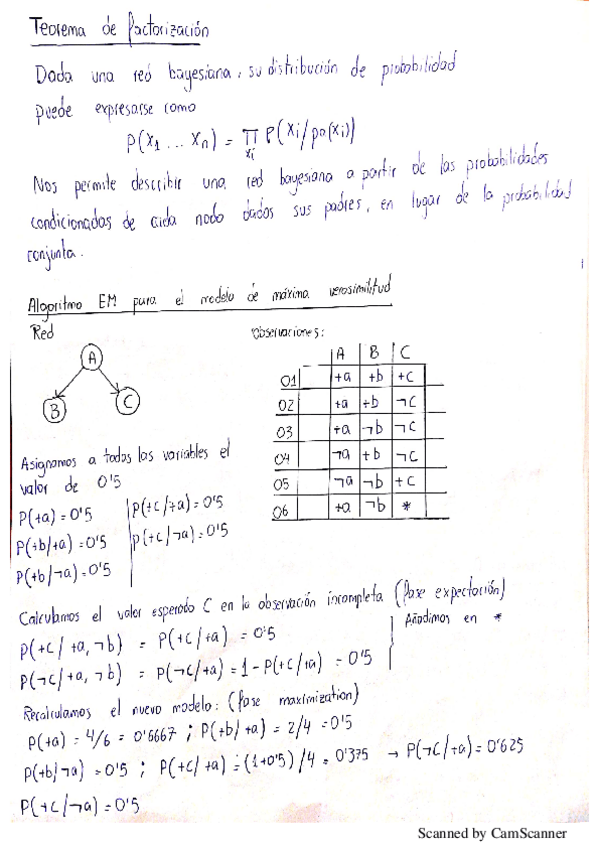 Teorema de factorización
Dada una red bayesiana, su distribución de probabilidad
puede expresarse como
P(x1 ... xn) = ∏xi P(xi/pa(xi))
Nos permite describir una red bayesiana a partir de las probabilidades
condicionadas de cada nodo dados sus padres, en lugar de la probabilidad
conjunta.
Algoritmo EM para el modelo de máxima verosimilitud
Red
Observaciones:
A
B
C
A B C
O1 +a +b +c
O2 +a +b ¬c
O3 +a ¬b ¬c
O4 ¬a +b ¬c
O5 ¬a ¬b +c
O6 +a ¬b *
Asignamos a todas las variables el
valor de 0'5
P(+a) = 0'5
P(+b/+a) = 0'5
P(+b/¬a) = 0'5
P(+c/+a) = 0'5
P(+c/¬a) = 0'5
Calculamos el valor esperado C en la observación incompleta (fase expectación)
P(+c/ +a, ¬b) = P(+c/+a) = 0'5
P(¬c/ +a, ¬b) = P(¬c/+a) = 1 - P(+c/+a) = 0'5
Añadimos en *
Recalculamos el nuevo modelo: (fase maximization)
P(+a) = 4/6 = 0'6667 ; P(+b/+a) = 2/4 = 0'5
P(+b/¬a) = 0'5 ; P(+c/+a) = (1+0'5)/4 = 0'375 → P(¬c/+a) = 0'625
P(+c/¬a) = 0'5
Scanned by CamScanner